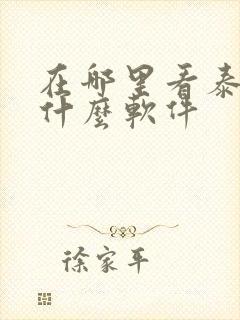 在哪里看泰
什麼軟件
徐家平